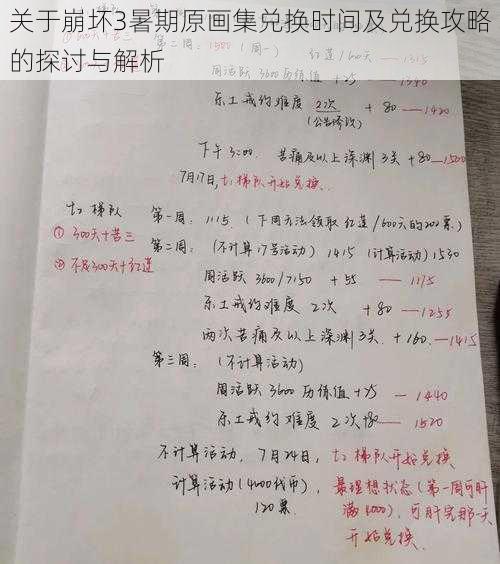 关于崩坏3暑期原画集兑换时间及兑换攻略
的探讨与解析
第二周: 1500 (周一) 红莲/600 — 1315
周活跃 3600 历练值 +25 — 1340
乐土戒约难度 2次 +80 — 1420
下午3:00. 苦痛及以上深渊3关 +80 — 1500
7月17日, t1梯队开始兑换.
t2梯队 第一周: 1115. (下周无法领取红莲/600天的200票.)
① 300天+苦三 第二周: (不计算17号活动) 1415 (计算活动) 1530
② 不足300天+红莲 周活跃 3600/7150 +55 — 1175
乐土戒约难度 2次 +80 — 1255
两次苦痛及以上深渊3关. +160. — 1415
第三周: (不计算活动)
周活跃 3600 历练值 +25 — 1440
乐土戒约难度 2次 +80 — 1520
不计算活动, 7月24日, t2梯队开始兑换
计算活动(4000代币), 最理想状态(第一周可肝
120票. 满4000), 可肝完那一天
开始兑换.